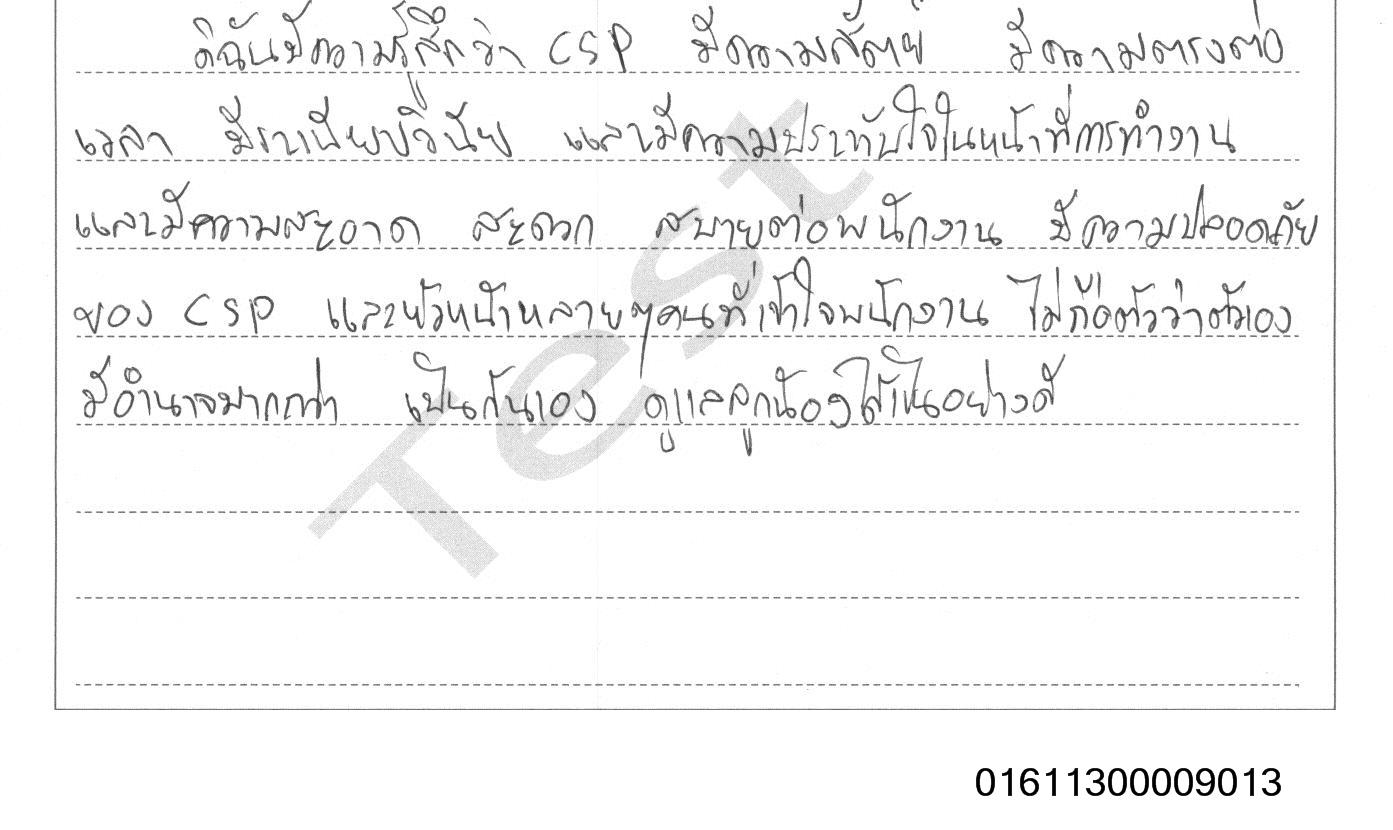 ดิฉันมีความรู้สึกว่า CSP มีความสัตย์ มีความตรงต่อ
เวลา มีระเบียบวินัย และมีความประทับใจในหน้าที่การทำงาน
และมีความสะอาด สะดวก สบายต่อพนักงาน มีความปลอดภัย
ของ CSP และหัวหน้าหลายๆคนที่เข้าใจพนักงาน ไม่ถือตัวว่าตัวเอง
มีอำนาจมากกว่า เป็นกันเอง ดูแลลูกน้องได้เป็นอย่างดี
Test
01611300009013